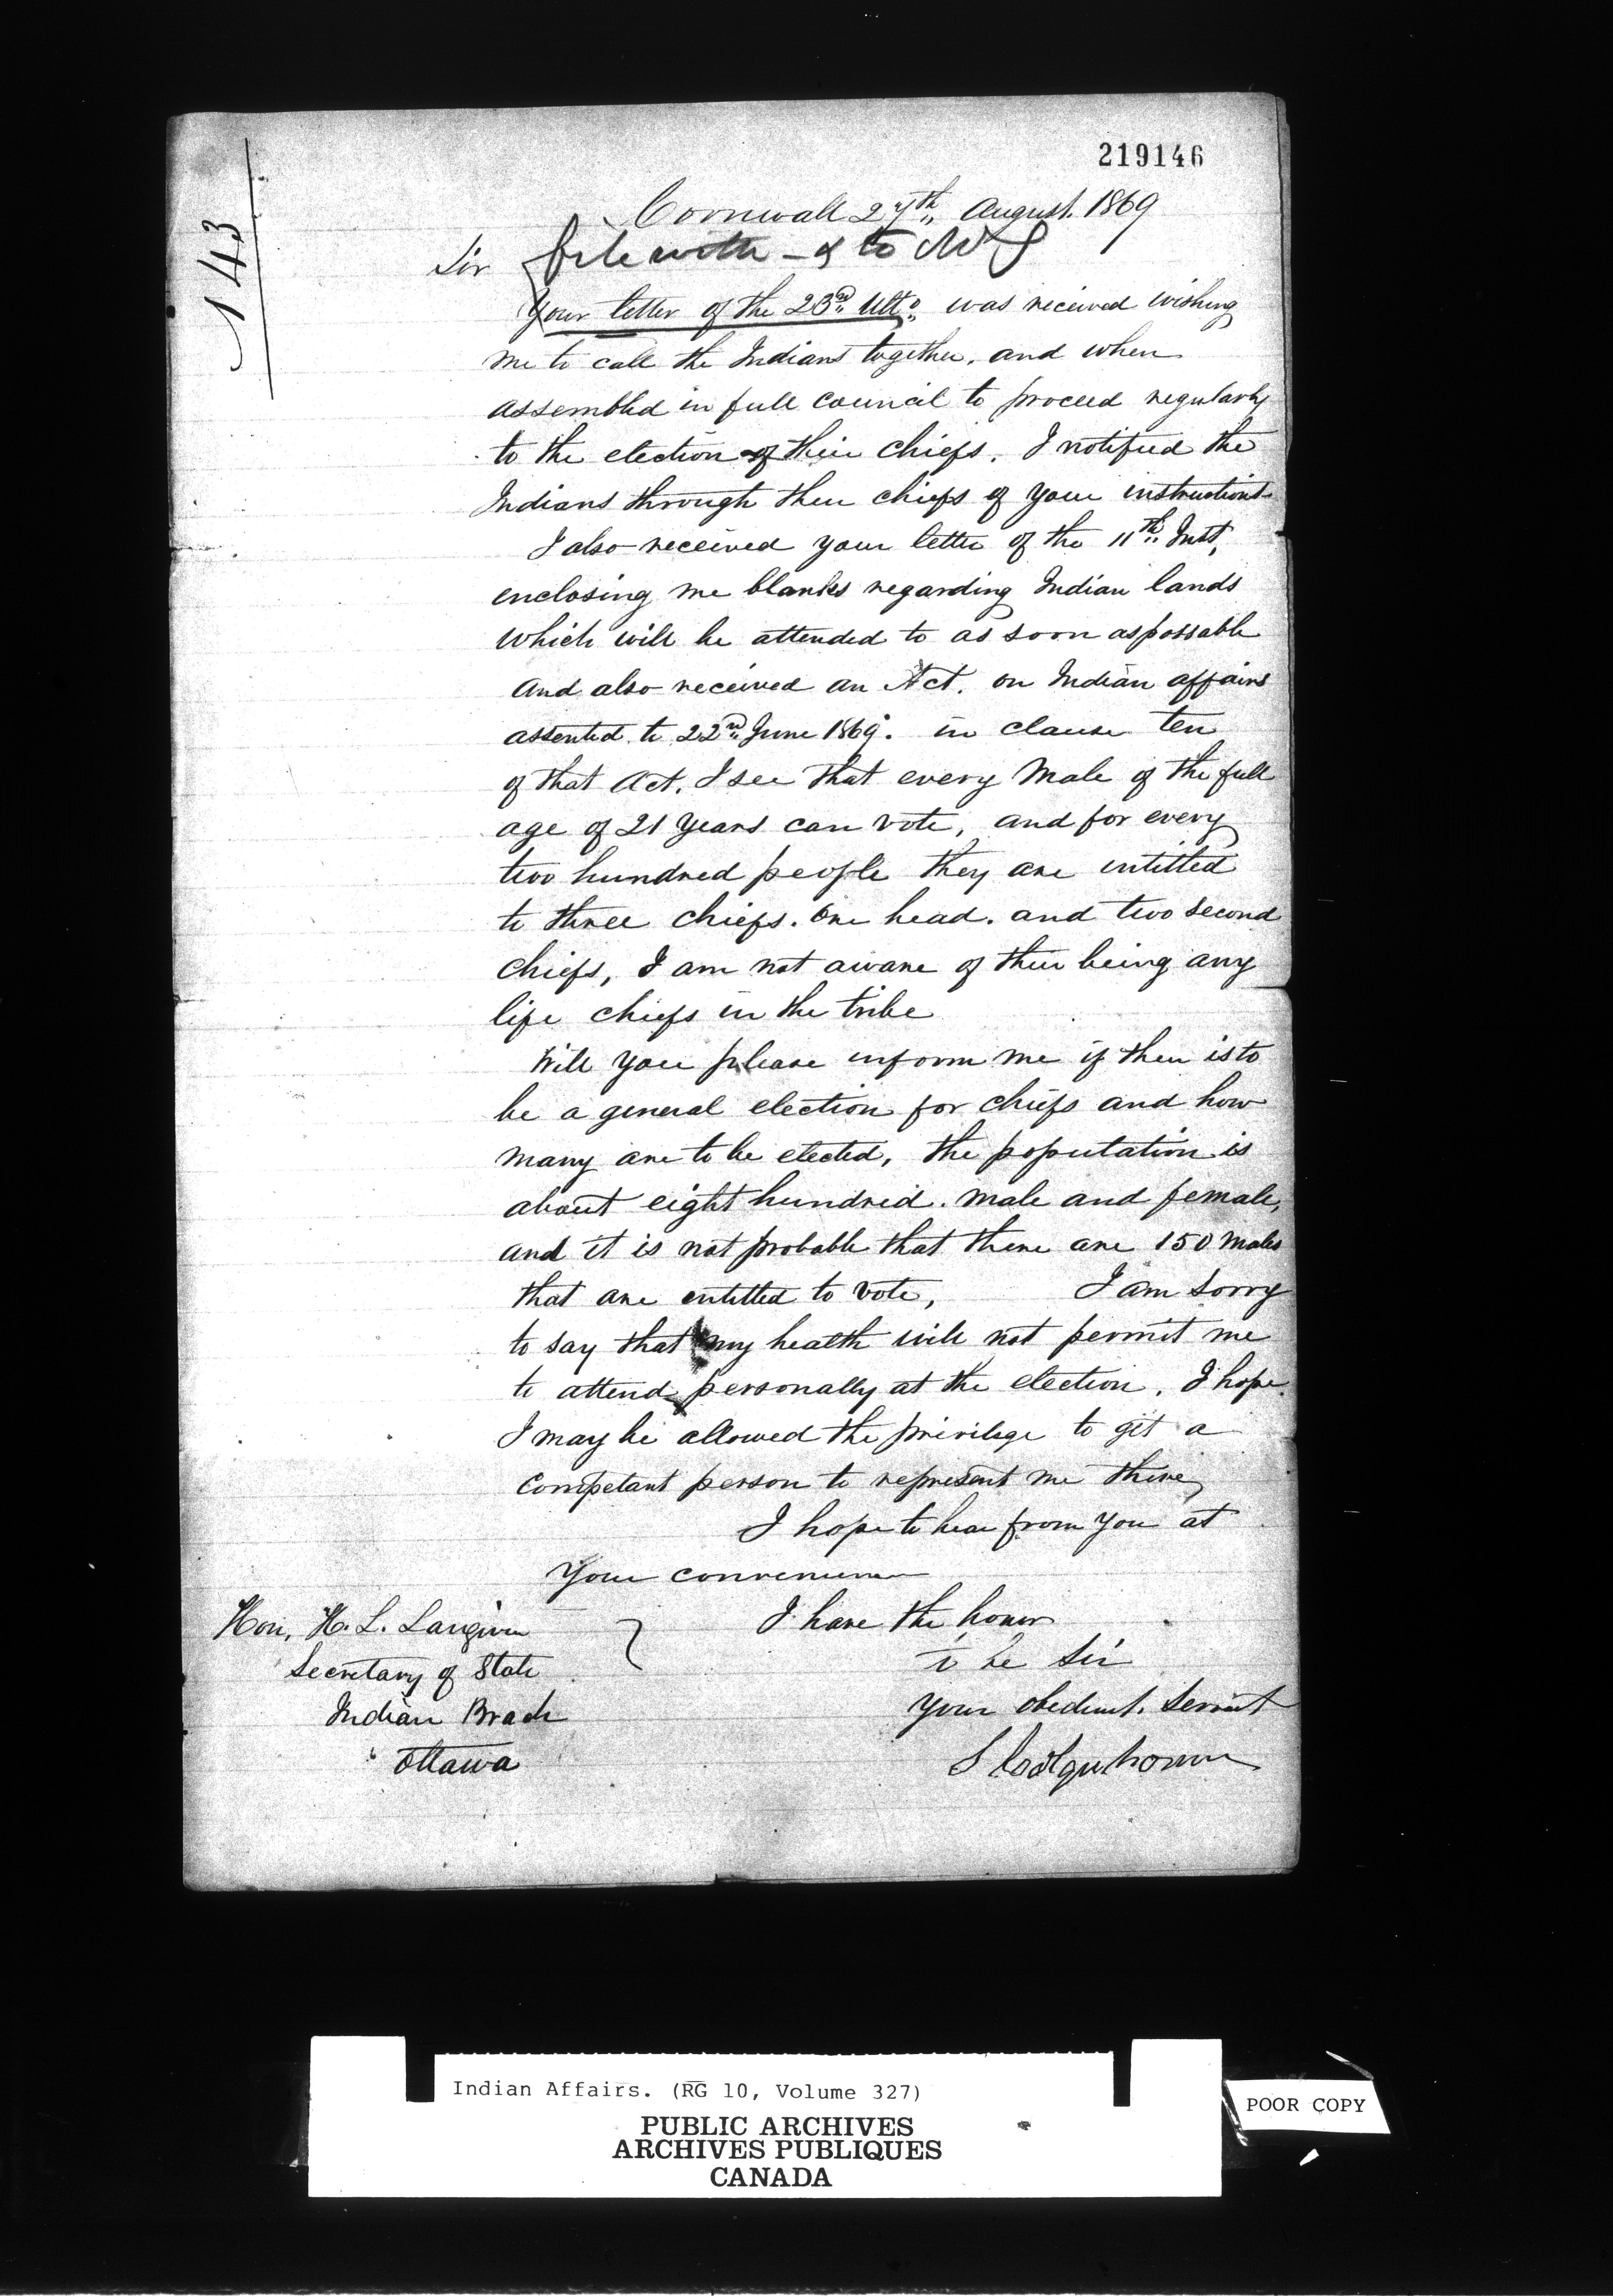 219146
143
Cornwall 27th August. 1869
Sir
file with - & to
Your letter of the 23rd Ulto. was received wishing
me to call the Indians together, and when
assembled in full council to proceed regularly
to the election of their chiefs. I notified the
Indians through their chiefs of your instructions
I also received your letter of the 11th Inst,
enclosing me blanks regarding Indian lands
which will be attended to as soon as possable
and also received an Act. on Indian affairs
assented to 22nd June 1869. in clause ten
of that Act. I see that every Male of the full
age of 21 years can vote, and for every
two hundred people they are intitled
to three chiefs. One head. and two second
chiefs, I am not aware of their being any
life chiefs in the tribe
Will you please inform me if their is to
be a general election for chiefs and how
many are to be elected, the population is
about eight hundred. male and female,
and it is not probable that there are 150 males
that are entitled to vote, I am sorry
to say that my health will not permit me
to attend personally at the election. I hope
I may be allowed the privilege to get a
competant person to represent me there,
I hope to hear from you at
your convenience
I have the honor
to be Sir
your obedient. Servant
S Colquhoun
Hon, H. L. Langevin
Secretary of State
Indian Brach
Ottawa
Indian Affairs. (RG 10, Volume 327)
PUBLIC ARCHIVES
ARCHIVES PUBLIQUES
CANADA
POOR COPY